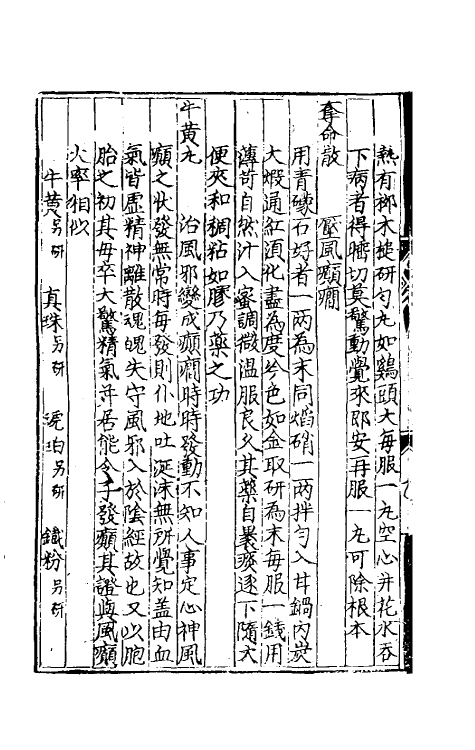 熱有梛木槌研勻丸如鷄頭大每服一丸空心井花水吞
下病者得睡切莫驚動覺來即安再服一丸可除根本
奪命散　壓風癲癇
用青礞石好者一兩為末同焰硝一兩拌勻入甘鍋內炭
大煅通紅湏化盡為度兮色如金取研為末每服一錢用
薄荷自然汁入蜜調微溫服良久其藥自裹痰逐下隨大
便夾和稠粘如膠乃藥之功
牛黃丸　治風邪變成癲癇時時發動不知人事定心神風
癲之狀發無常時每發則仆地吐涎沫無所覺知盖由血
氣皆虛精神離散魂魄失守風邪入於陰經故也又以胞
胎之初其母卒大驚精氣并居能令子發癲其證與風癲
大率相似
牛黃另研　真珠另研　琥珀另研　鐵粉另研